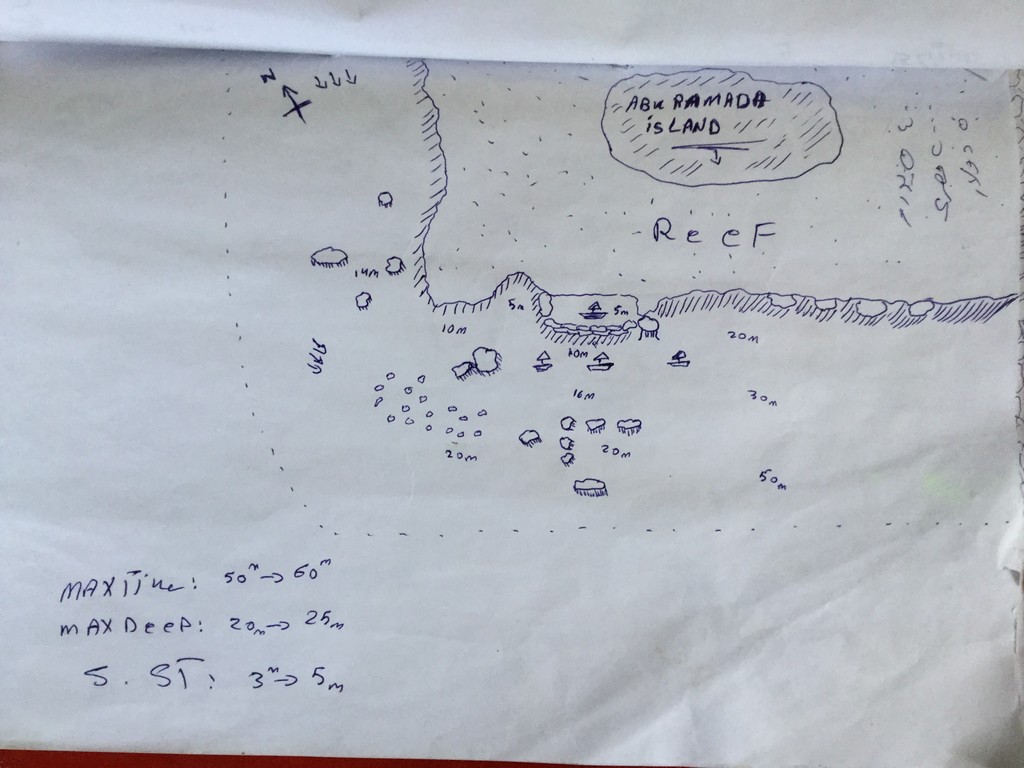 N
ABU RAMADA
ISLAND
REEF
14m
5m
5m
10m
10m
20m
16m
30m
20m
20m
50m
MAX Time: 50m → 60m
MAX DeeP: 20m → 25m
S. ST: 3m → 5m